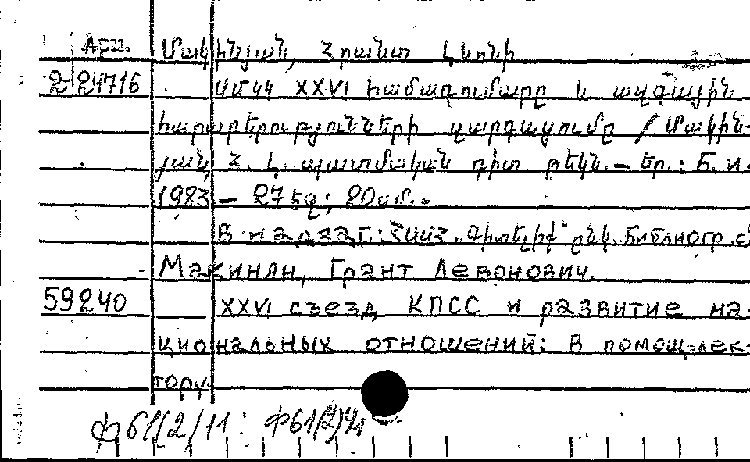 Арм. Մակինյան, Հրանտ Լևոնի
2 24716 ՍՄԿԿ XXVI համագումարը և ազգային
հարաբերությունների զարգացումը / Մակին-
յան, Հ. Լ. պատմական գիտ. թեկն. – Եր.: Б. и.
1983 – 27 էջ; 20սմ.
В надзаг.: ՀՍՍՀ "Գիտելիք" ընկ. Библиогр. с
Макинян, Грант Левонович.
59240 XXVI съезд КПСС и развитие на-
циональных отношений: В помощ лек-
тору
ф61(2)11: Ф61(2)4